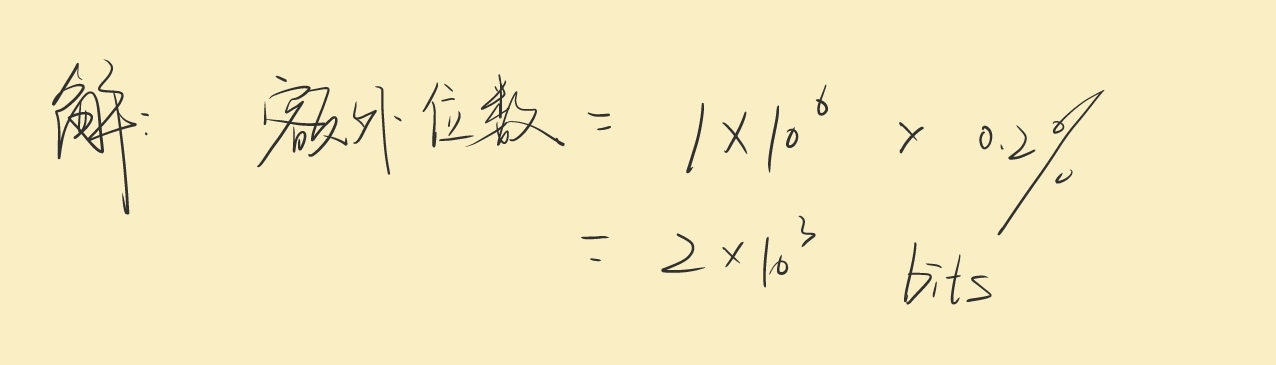 解: 额外位数 = 1×10⁶ × 0.2%
= 2×10³ bits